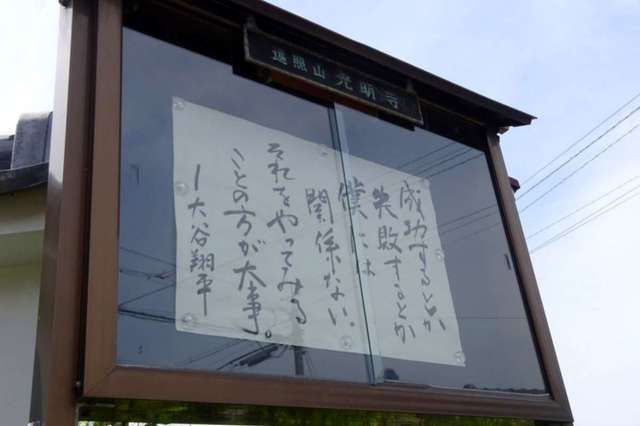 遍照山 光明寺
成功するとか
失敗するとか
僕には
関係ない。
それをやってみる
ことの方が大事。
ー大谷翔平